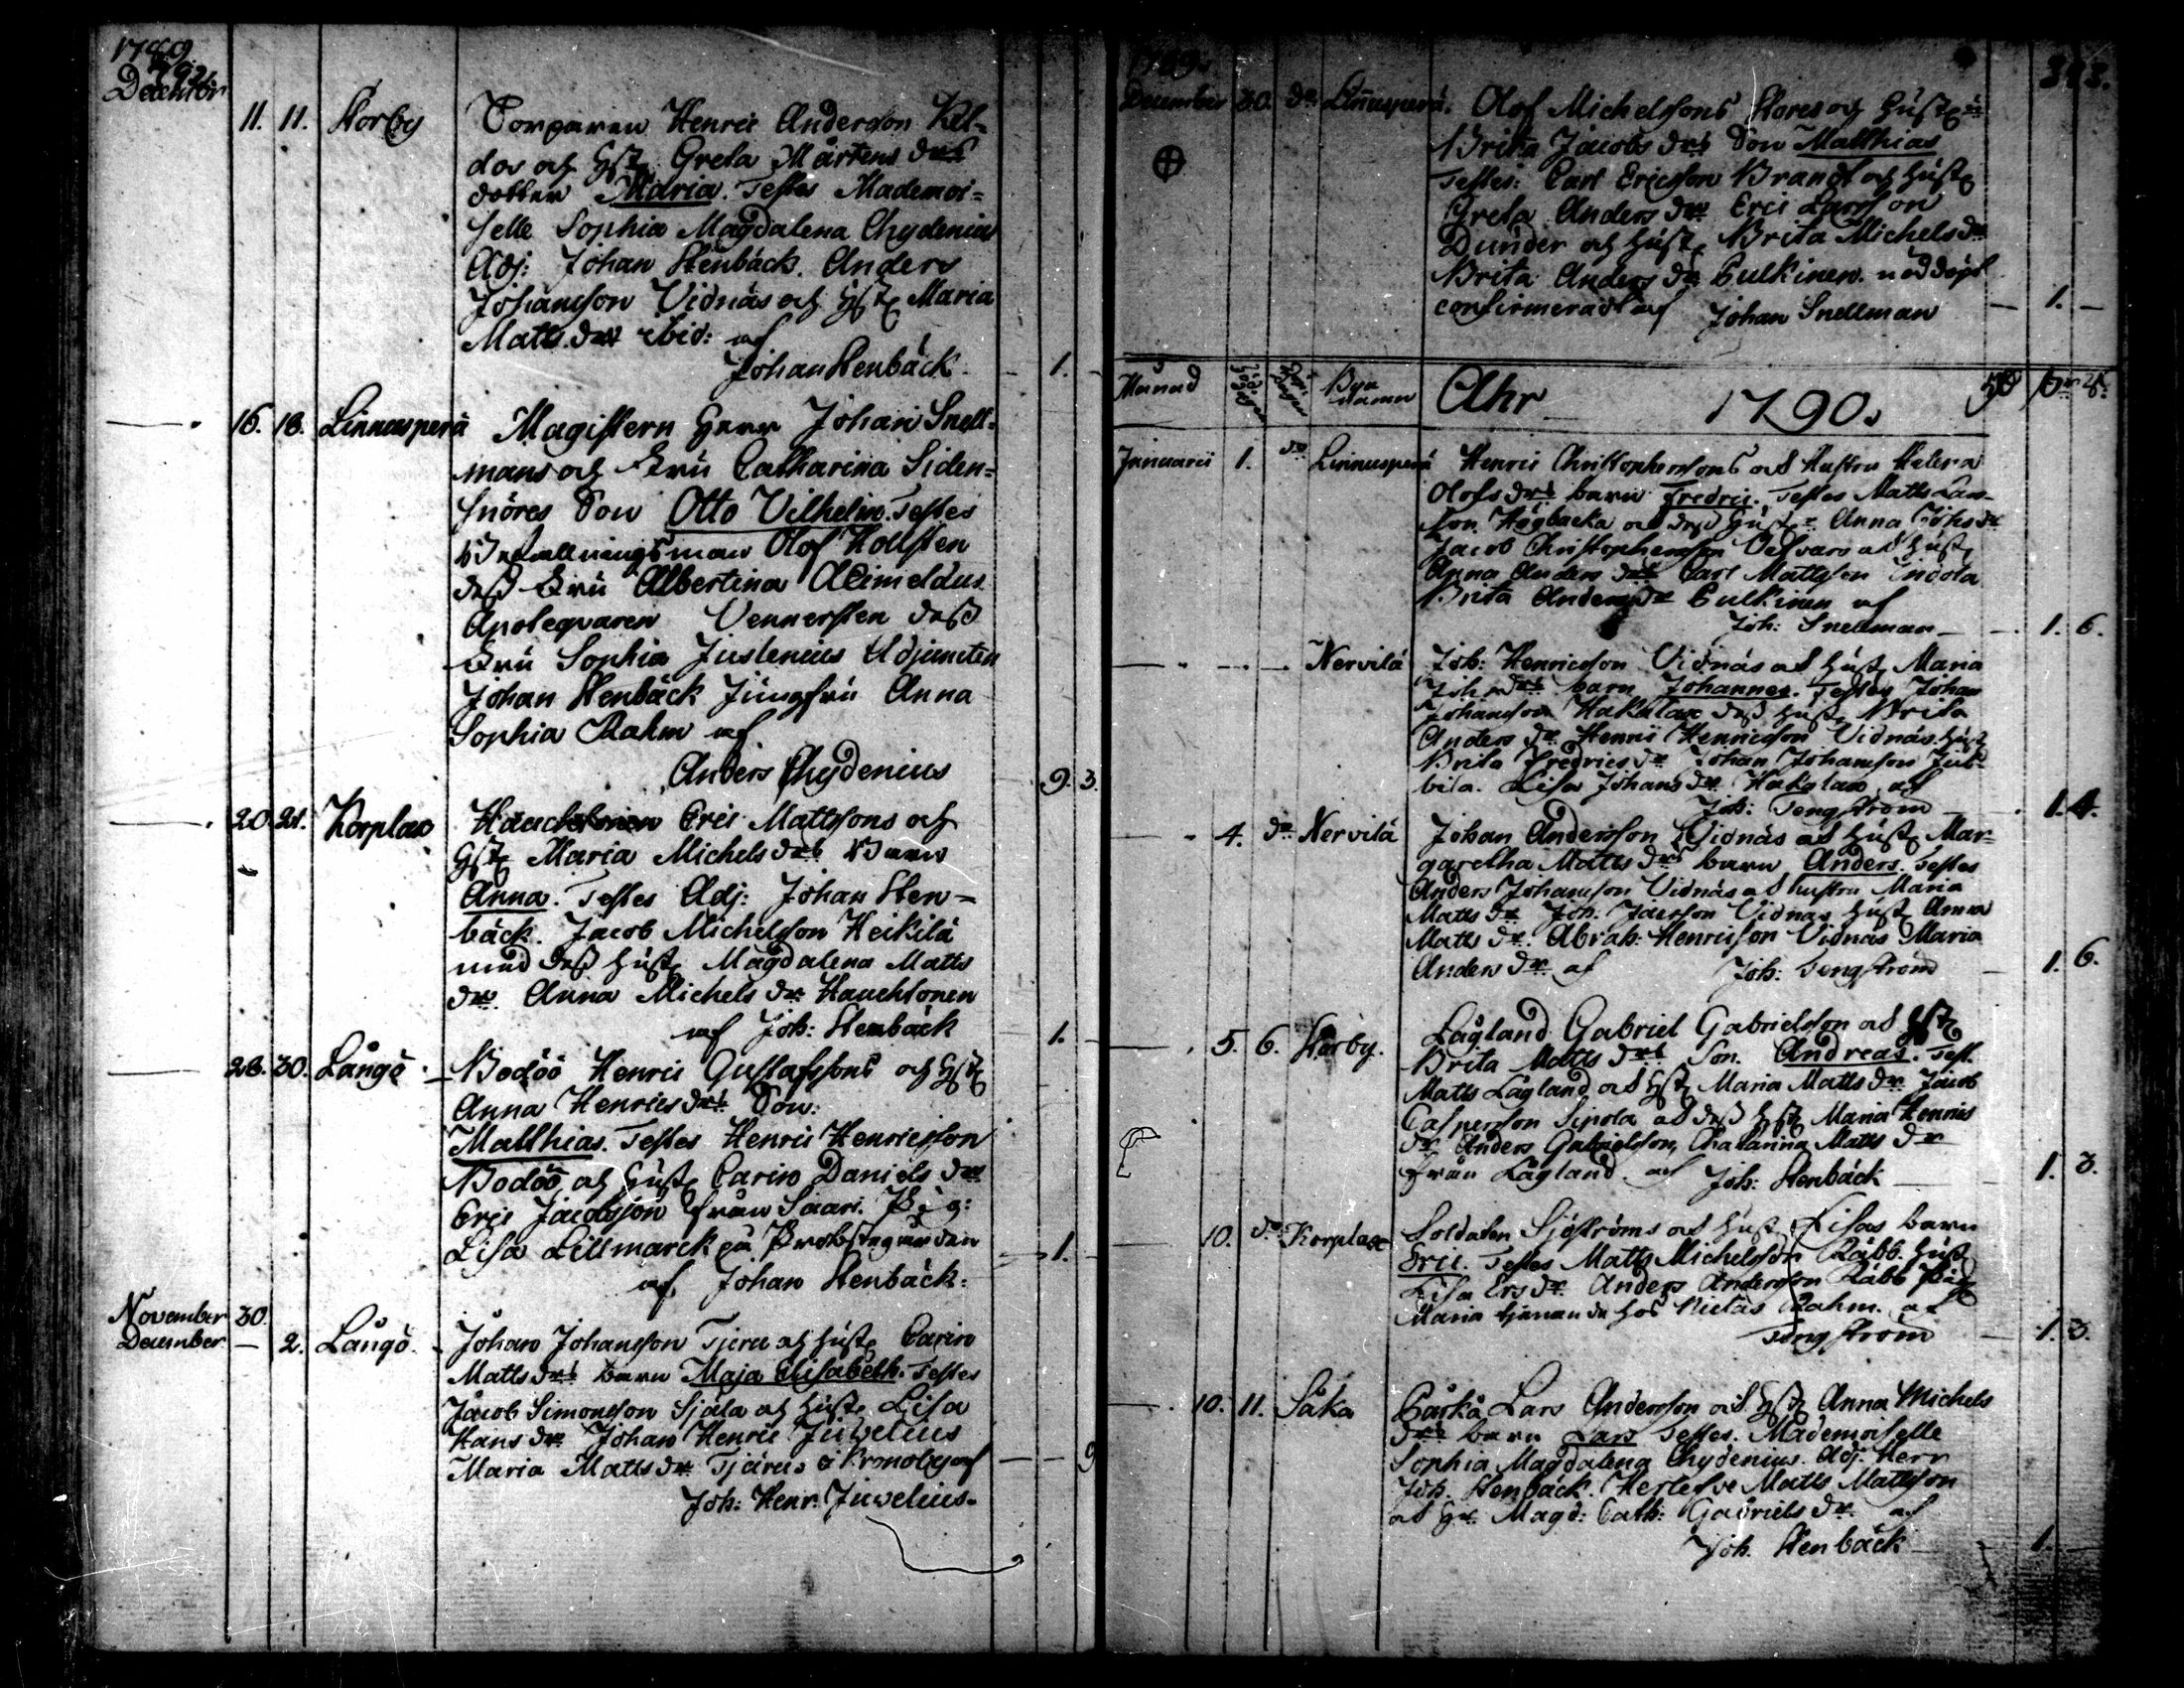 1789
December
11. 11. Storby Torparen Henric Anderson Kel-
dos och Hst Greta Mårtens drs
dotter Maria. Testes Mademoi-
selle Sophia Magdalena Chydenia
Adj: Johan Stenbäck. Anders
Johansson Vidnäs och Hst Maria
Matts dr ibid: af
Johan Stenbäck. 1.
16. 18. Linnusperä Magistern Herr Johan Snell-
mans och Fru Catharina Siden-
snöres Son Otto Vilhelm. Testes
Befallningsman Olof Hollsten
dess Fru Albertina Aeimelæus
Apotequaren Vennersten dess
Fru Sophia Juslenius Adjuncten
Johan Stenbäck Jungfru Anna
Sophia Rahm af
Anders Chydenius 9. 3.
20. 21. Korplax Hauchtonen Eric Mattssons och
Hst Maria Michels drs Barn
Anna. Testes Adj: Johan Sten-
bäck. Jacob Michelsson Heikilä
med dess Hust Magdalena Matts
dr. Anna Michels dr Hauchtonen
af Joh: Stenbäck 1.
28. 30. Långö Bodöö Henric Gustafssons och Hst
Anna Henrics drs Son:
Matthias. Testes Henric Henricsson
Bodöö och Hust Carin Daniels dr
Eric Jacobsson från Saari. Pig:
Lisa Lillmarck på Probstegården 1.
af Johan Stenbäck:
November 30.
December 2. Långö Johan Johansson Tjeru och Hust Carin
Matts drs barn Maja Elisabeth. Testes
Jacob Simonsson Sjala och Hust Lisa
Hans dr Johan Henric Juvelius
Maria Matts dr Tjärus i Kronoby af 9
Joh: Henr. Juvelius.
1789.
343.
December 30. do Linnusperä. Olof Michelssons Stores och Hustrus
Brita Jacobs drs Son Matthias
Testes: Carl Ericsson Brandt och Hust
Greta Anders dr Eric Larsson
Dunder och Hust Brita Michels dr
Brita Anders dr Pulkinen. nöddöpt
confirmeradt af Johan Snellman 1.
Månad Byanamn Ahr 1790.
Januarii 1. do Linnusperä Henric Christophersons och Hustru Helena
Olofs drs barn Fredric. Testes Matts Lars-
son Högbacka och dess Hust Anna Johs dr
Jacob Christophersson och Hust
Anna Anders dr Carl Mattsson Indola
Brita Anders dr Pulkinen af
Joh: Snellman 1. 6.
Nervilä Joh: Henricsson Vidnäs och Hust Maria
Joh drs barn Johannes. Testes Johan
Johansson Hakalax dess Hust Brita
Anders dr Henric Henricsson Vidnäs Hust
Brita Fredrics dr Johan Johansson Jub-
bila. Lisa Johans dr Hakalax af
Joh: Tengström 1. 4.
4. do Nervilä Johan Andersson Vidnäs och Hust Mar-
garetha Matts drs barn Anders. Testes
Anders Johansson Vidnäs och hustru Maria
Matts dr Joh: Jacsson Vidnäs Hust Anna
Matts dr. Abrah: Henricsson Vidnäs Maria
Anders dr af Joh: Tengström 1. 6.
5. 6. Storby. Lågland Gabriel Gabrielsson och Hst
Brita Matts drs Son. Andreas. Test.
Matts Lagland och Hst Maria Matts dr Jacob
Caspersson Sipola och dess Hst Maria Henrics
dr Anders Gabrielsson, Chatarina Matts dr
från Lågland af Joh: Stenbäck 1. 3.
10. do Korplax Soldaten Sjöströms och Hust Lisas barn
Eric. Testes Matts Michelsson Räbb. Hust
Lisa Ers dr Anders Andersson Räbb Pig
Maria tjenande hos Niclas Rahm. af
Tengström 1. 3.
10. 11. Såka Parkå Lars Andersson och Hst Anna Michels
drs barn Lars Testes. Mademoiselle
Sophia Magdalena Chydenius Adj. Herr
Joh. Stenbäck. Herlefve Matts Mattsson
och Hu. Magd: Cath: Gabriels dr af
Joh. Stenbäck 1.